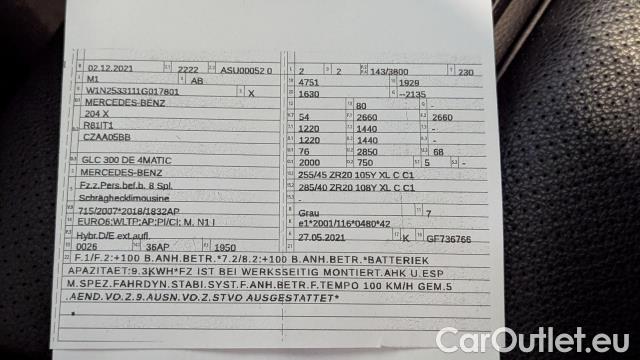 02.12.2021 2222 ASU00052 0
M1 AB
W1N2533111G017801 X
MERCEDES-BENZ
204 X
R81IT1
CZAA05BB
GLC 300 DE 4MATIC
MERCEDES-BENZ
Fz.z.Pers.bef.b. 8 Spl.
Schräghecklimousine
715/2007*2018/1832AP
EURO6;WLTP;AP;PI/CI; M, N1 I
Hybr.D/E ext.aufl.
0026 36AP 1950
2 2 143/3800 230
4751 1929
1630 --2135
80 -
54 2660 2660
1220 1440 -
1220 1440 -
76 2850 68
2000 750 5 -
255/45 ZR20 105Y XL C C1
285/40 ZR20 108Y XL C C1
-
Grau 7
e1*2001/116*0480*42
27.05.2021 K GF736766
22 F.1/F.2:+100 B.ANH.BETR.*7.2/8.2:+100 B.ANH.BETR.*BATTERIEK
APAZITAET:9.3KWH*FZ IST BEI WERKSSEITIG MONTIERT.AHK U.ESP
M.SPEZ.FAHRDYN.STABI.SYST.F.ANH.BETR.F.TEMPO 100 KM/H GEM.5
.AEND.VO.Z.9.AUSN.VO.Z.STVO AUSGESTATTET*
CarOutlet.eu